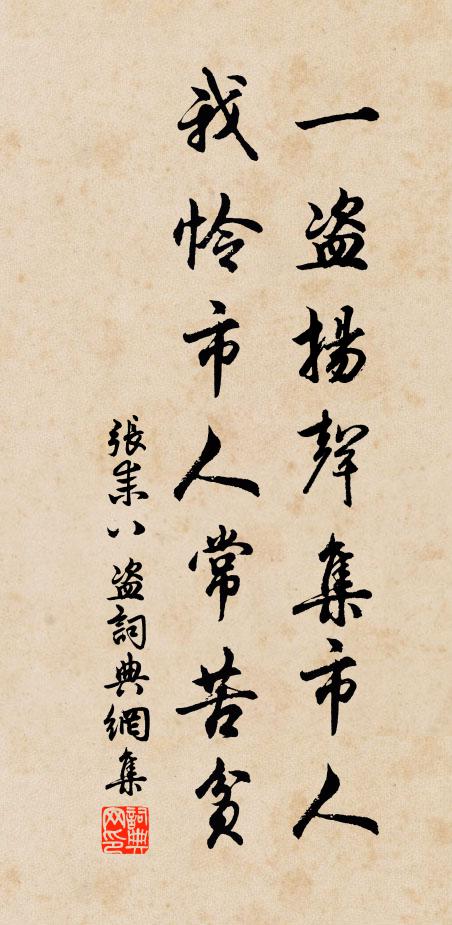 一盗揚聲集市人
我怜市人常苦貧
張耒八盗詞典網集
詞典
网印